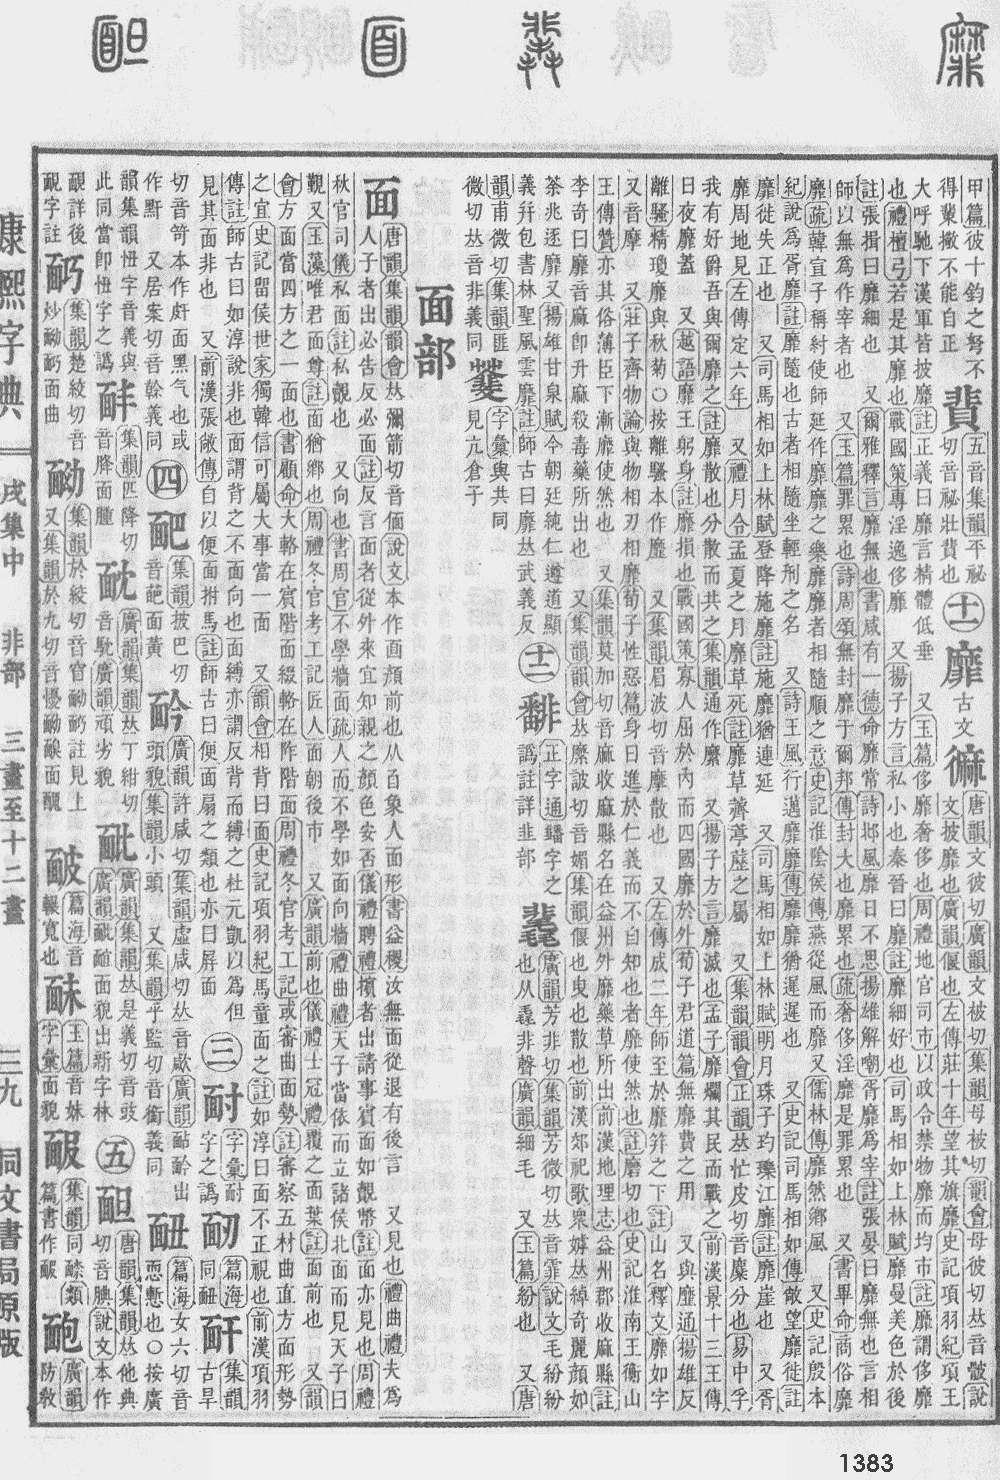 甲篇彼十鈞之弩不
得棐撇不能自正
五音集韻平祕
切音祕壯也
十一
靡
古文
唐韻文彼切廣韻文被切集韻母被切韻會母彼切𠀤音骳說
文披靡也廣韻偃也左傳莊十年望其旗靡史記項羽紀項王
大呼馳下漢軍皆披靡註正義曰靡言精體低垂 又玉篇侈靡奢侈也周禮地官司市以政令禁物靡而均市註靡謂侈靡
也禮檀弓若是其靡也戰國策專淫逸侈靡 又揚子方言私小也秦晉曰靡註靡細好也司馬相如上林賦靡曼美色於後
註張揖曰靡細也 又爾雅釋言靡無也書咸有一德命靡常詩邶風靡日不思揚雄解嘲胥靡爲宰註張晏曰靡無也言相
師以無爲作宰者也 又玉篇罪累也詩周頌無封靡于爾邦傳封大也靡累也疏奢侈淫靡是罪累也 又書畢命商俗靡
靡疏韓宣子稱紂使師延作靡靡之樂靡靡者相隨順之意史記淮陰侯傳燕從風而靡又儒林傳靡然鄕風 又史記殷本
紀說爲胥靡註靡隨也古者相隨坐輕刑之名 又詩王風行邁靡靡傳靡靡猶遲遲也 又史記司馬相如傳敞望靡徙註
靡徙失正也 又司馬相如上林賦登降施靡註施靡猶連延 又司馬相如上林賦明月珠子玓瓅江靡註靡崖也 又胥
靡周地見左傳定六年 又禮月令孟夏之月靡草死註靡草薺葶藶之屬 又集韻韻會正韻𠀤忙皮切音糜分也易中孚
我有好爵吾與爾靡之註靡散也分散而共之集韻通作縻 又揚子方言靡滅也孟子靡爛其民而戰之前漢景十三王傳
日夜靡蓋 又越語靡王躬身註靡損也戰國策寡人屈於內而四國靡於外荀子君道篇無靡費之用 又與𪎭通揚雄反
離騷精瓊靡與秋菊○按離騷本作𪎭 又集韻眉波切音摩散也 又左傳成二年師至於靡筓之下註山名釋文靡如字
又音摩 又莊子齊物論與物相刃相靡荀子性惡篇身日進於仁義而不自知也者靡使然也註磨切也史記淮南王衡山
王傳贊亦其俗薄臣下漸靡使然也 又集韻莫加切音麻收靡縣名在益州外靡藥草所出前漢地理志益州郡收靡縣註
李奇曰靡音麻卽升麻殺毒藥所出也 又集韻韻會𠀤縻詖切音媚集韻偃也曳也散也前漢郊祀歌衆嫭𠀤綽奇麗顏如
荼兆逐靡又揚雄甘泉賦今朝廷純仁遵道顯
義幷包書林聖風雲靡註師古曰靡𠀤武義反
十二
正字通䪛字之
譌註詳韭部
廣韻芳非切集韻芳微切𠀤音霏說文毛紛紛
也从毳非聲廣韻細毛 又玉篇紛也 又唐
韻甫微切集韻匪
微切𠀤音非義同
字彙與共同
見亢倉子
面部
面
唐韻集韻韻會𠀤彌箭切音偭說文本作𡇢顏前也从𦣻象人面形書益稷汝無面從退有後言 又見也禮曲禮夫爲
人子者出必告反必面註反言面者從外來宜知親之顏色安否儀禮聘禮擯者出請事賓面如覿幣註面亦見也周禮
秋官司儀私面註私覿也 又向也書周官不學牆面疏人而不學如面向牆禮曲禮天子當依而立諸侯北面而見天子曰
覲又玉藻唯君面尊註面猶鄕也周禮冬官考工記匠人面朝後市 又廣韻前也儀禮士冠禮覆之面葉註面前也 又韻
會方面當四方之一面也書顧命大輅在賓階面綴輅在阼階面周禮冬官考工記或審曲面勢註審察五材曲直方面形勢
之宜史記留侯世家獨韓信可屬大事當一面 又韻會相背曰面史記項羽紀馬童面之註如淳曰面不正視也前漢項羽
傳註師古曰如淳說非也面謂背之不面向也面縛亦謂反背而縛之杜元凱以爲但
見其面非也 又前漢張敞傳自以便面拊馬註師古曰便面扇之類也亦曰屏面
三
耐
字彙耐
字之譌
篇海
同䩄
集韻
古旱
切音笴本作皯面黑气也或
作䵟 又居案切音幹義同
四
集韻披巴切
音葩面黃
廣韻許咸切集韻虛咸切𠀤音歁廣韻䩎䩂出
頭貌集韻小頭 又集韻乎監切音銜義同
篇海女六切音
恧慙也○按廣
韻集韻忸字音義與
此同當卽忸字之譌
集韻匹降切
音胮面腫
廣韻集韻𠀤丁紺切
音馾廣韻頑劣貌
廣韻集韻𠀤是義切音豉
廣韻䩃䩔面貌出新字林
五
唐韻集韻𠀤他典
切音腆說文本作
靦詳後
䩄字註
集韻楚絞切音
炒䩌䩁面曲
集韻於絞切音窅䩌䩁註見上
又集韻於九切音懮䩌䩳面醜
篇海音
䩯寬也
玉篇音妹
字彙面貌
集韻同䤅類
篇書作䩗
廣韻
防敎
康熙字典
戌集中 非部 三畫至十二畫
三九 同文書局原版
1383